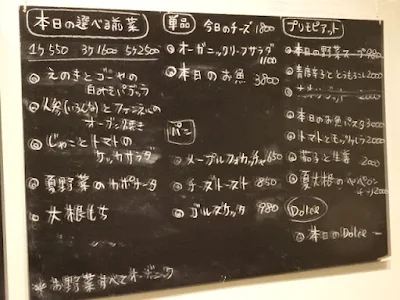 本日の選べる前菜
1ケ550 3ケ1600 5ケ2500
◎えのきとゴーヤの
白みそパプッラ
◎人参(いろんな)とファンネルの
オーブン焼き
◎じゃことトマトの
ケッカサラダ
◎夏野菜のカポナータ
◎大根もち
※お野菜すべてオーガニック
単品
今日のチーズ1800
◎オーガニックリーフサラダ
1100
◎本日のお魚 3800
パン
◎メープルフォカッチャ
◎チーズトースト 850
◎ブルスケッタ 980
プリモピアット
◎本日の野菜スープ980
とうもろこし2000
◎本日のお魚パスタ3000
◎トマトとモッツァレラ2000
◎茄子と生姜 2000
◎夏大根のペペロン
チーノ2000
Dolce
◎本日のDolce ー